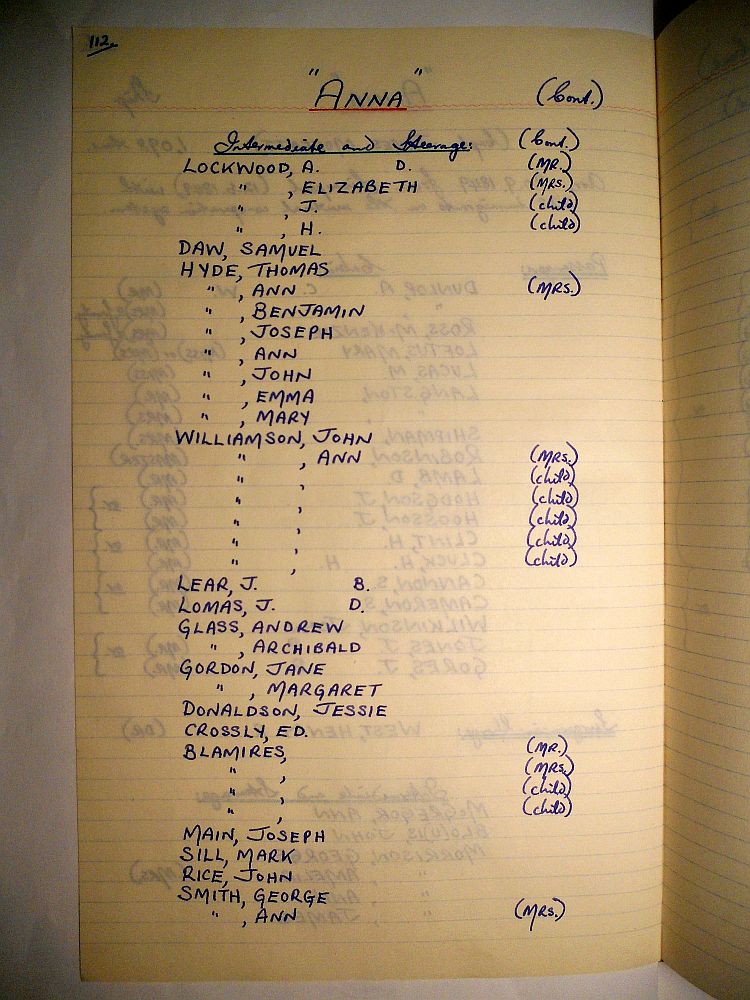 112.
"ANNA" (Cont.)
Intermediate and Steerage: (Cont.)
LOCKWOOD, A. D. (MR.)
" , ELIZABETH (MRS.)
" , J. (child)
" , H. (child)
DAW, SAMUEL
HYDE, THOMAS
" , ANN (MRS.)
" , BENJAMIN
" , JOSEPH
" , ANN
" , JOHN
" , EMMA
" , MARY
WILLIAMSON, JOHN
" , ANN (MRS.)
" , (child)
" , (child)
" , (child)
" , (child)
" , (child)
LEAR, J. B.
LOMAS, J. D.
GLASS, ANDREW
" , ARCHIBALD
GORDON, JANE
" , MARGARET
DONALDSON, JESSIE
CROSSLY, ED.
BLAMIRES, (MR.)
" , (MRS.)
" , (child)
" , (child)
MAIN, JOSEPH
SILL, MARK
RICE, JOHN
SMITH, GEORGE
" , ANN (MRS.)